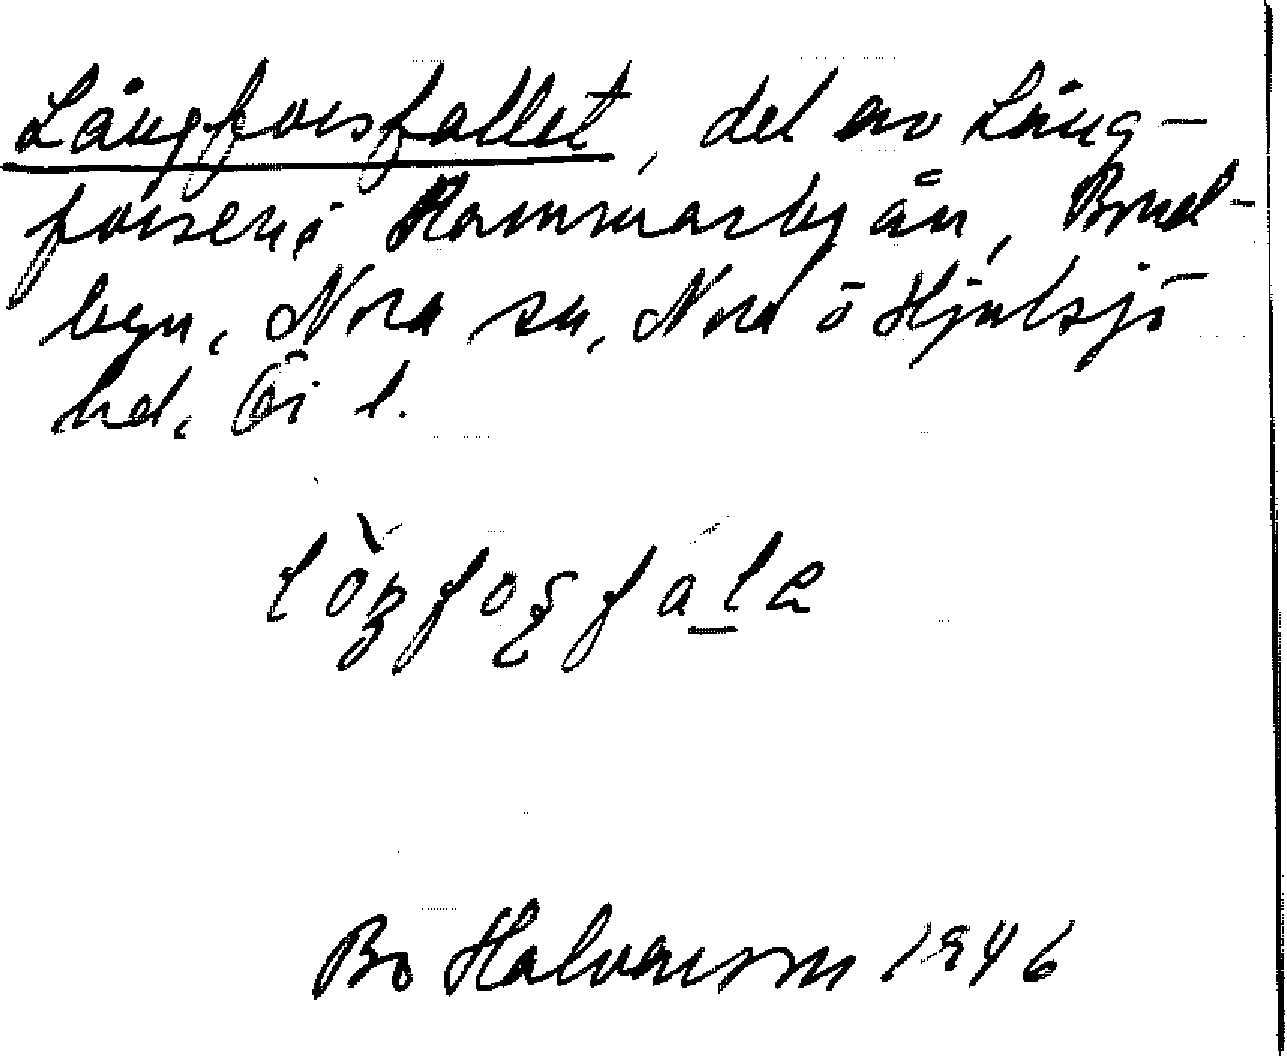 Långforsfallet, del av Lång-
forsen i Hammarby ån, Bond-
byn, Nora sn, Nora o Hjulsjö
hd, Ör l.
Bo Halvarsson 1946